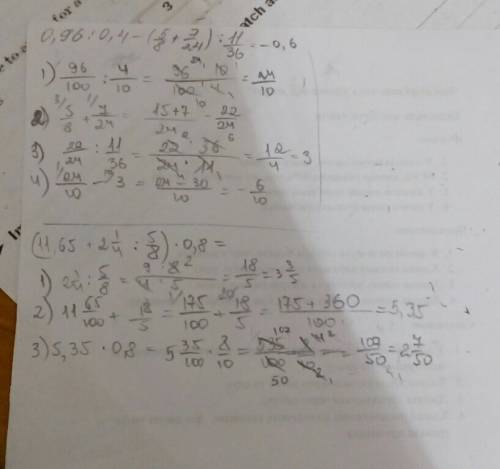 0,96 : 0,4 - (5/8 + 7/24) : 11/36 = -0,6
1) 96/100 : 4/10 = 96 · 10 / 100 · 4 = 24/10
2) 5/8 + 7/24 = 15+7/24 = 22/24
3) 22/24 : 11/36 = 22 · 36 / 24 · 11 = 12/4 = 3
4) 24/10 - 3 = 24 - 30/10 = - 6/10
(11,65 + 2 1/4 : 5/8) · 0,8 =
1) 2 1/4 : 5/8 = 9 · 8 / 4 · 5 = 18/5 = 3 3/5
2) 11 65/100 + 18/5 = 175/100 + 18/5 = 175 + 360/100 = 5,35
3) 5,35 · 0,8 = 5 35/100 · 8/10 = = 107/50 = 2 7/50